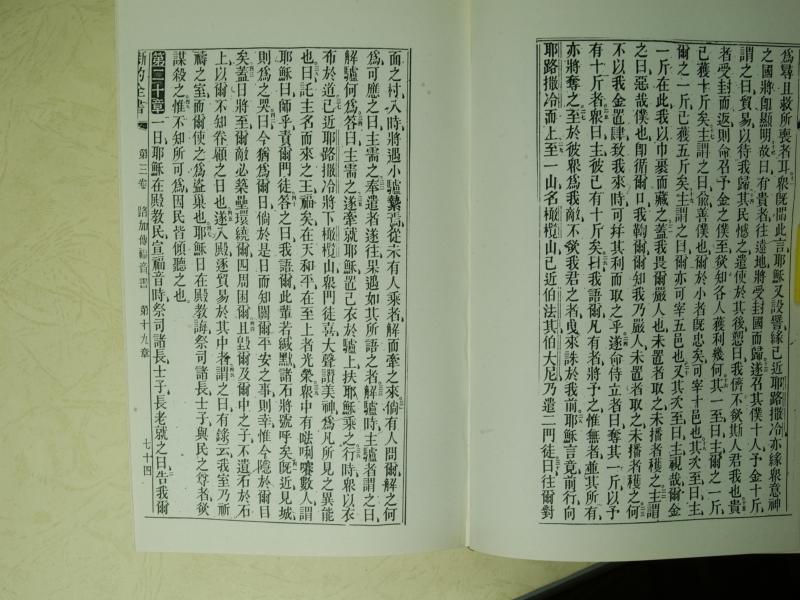 為尋且救所喪者耳衆既聞此言耶穌又設譬緣已近耶路撒冷亦緣衆意神
之國將卽顯明故曰有貴者往遠地將受封國而歸遂召其僕十人予金十斤
謂之曰貿易以待我歸其民憾之遣使於其後恕曰我儕不欲斯人君我也貴
者受封而返則命召予金之僕至欲知各人獲利幾何其一至曰主爾之一斤
已獲十斤矣主謂之曰俞善僕也爾於小者旣忠矣可宰十邑也其次至曰主
爾之一斤已獲五斤矣主謂之曰爾亦可宰五邑也又其次至曰主視哉爾金
一斤在此我以巾裹而藏之蓋我畏爾嚴人也未置者取之未播者穫之主謂
之曰惡哉僕也卽循爾口我鞫爾爾知我乃嚴人未置者取之未播者穫之何
不以我金置肆致我來時可幷其利而取之乎遂命侍立者曰奪其一斤以予
有十斤者衆曰主彼已有十斤矣曰我語爾凡有者將予之惟無者並其所有
亦將奪之至於彼衆為我敵不欲我君之者曳來誅於我前耶穌言竟前行向
耶路撒冷而上至一山名橄欖山已近伯法其伯大尼乃遣二門徒曰往爾對
面之村入時將遇小驢縶焉從未有人乘者解而牽之來倘有人問爾解之何
為可應之曰主需之奉遣者遂往果遇如其所語之者解驢時主驢者謂之曰
解驢何為答曰主需之遂牽就耶穌置己衣於驢上扶耶穌乘之行時衆以衣
布於道已近耶路撒冷將下橄欖山衆門徒喜大聲讚美神為凡所見之異能
也曰託主名而來之王福矣在天和平在至上者光榮衆中有㗫唎㘔數人謂
耶穌曰師乎責爾門徒答之曰我語爾此輩若緘默諸石將號呼矣旣近見城
則為之哭曰今猶為爾日倘於是日而知關爾平安之事則幸惟今隱於爾目
矣蓋日將至爾敵必築壘環繞爾四周困爾且毀爾及爾中之子不遺石於石
上以爾不知眷顧之日也遂入殿逐貿易於其中者謂之曰有錄云我室乃祈
禱之室而爾使之為盜巢也耶穌日在殿教誨祭司諸長士子與民之尊者欲
謀殺之惟不知所可為因民皆傾聽之也
第二十章一日耶穌在殿教民宣福音時祭司諸長士子長老就之曰告我爾
新約全書 第三卷 路加傳福音書 第十九章 七十四